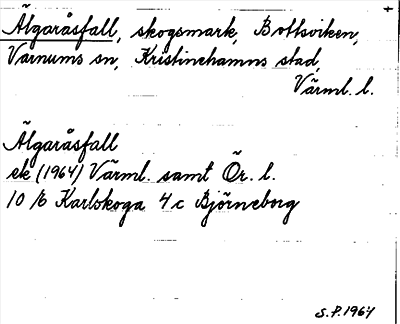 Älgaråsfall, skogsmark, Bottsviken,
Varnums sn, Kristinehamns stad,
Värml. l.
Älgaråsfall
ek (1964) Värml. samt Ör. l.
10 E Karlskoga 4 c Björneborg
S.P. 1964